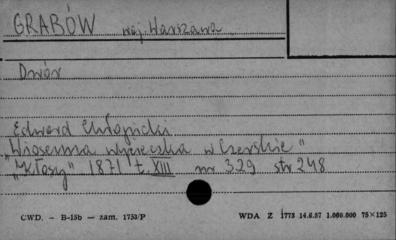 GRABÓW woj. Warszawa
Dwór
Edward Chłopicki
„Wiosenna wycieczka w Czerskie"
„Kłosy" 1871 t. XIII nr 329 str 248
CWD. — B-15b — zam. 1753/P WDA Z 1773 14.6.57 1.000.000 75×125